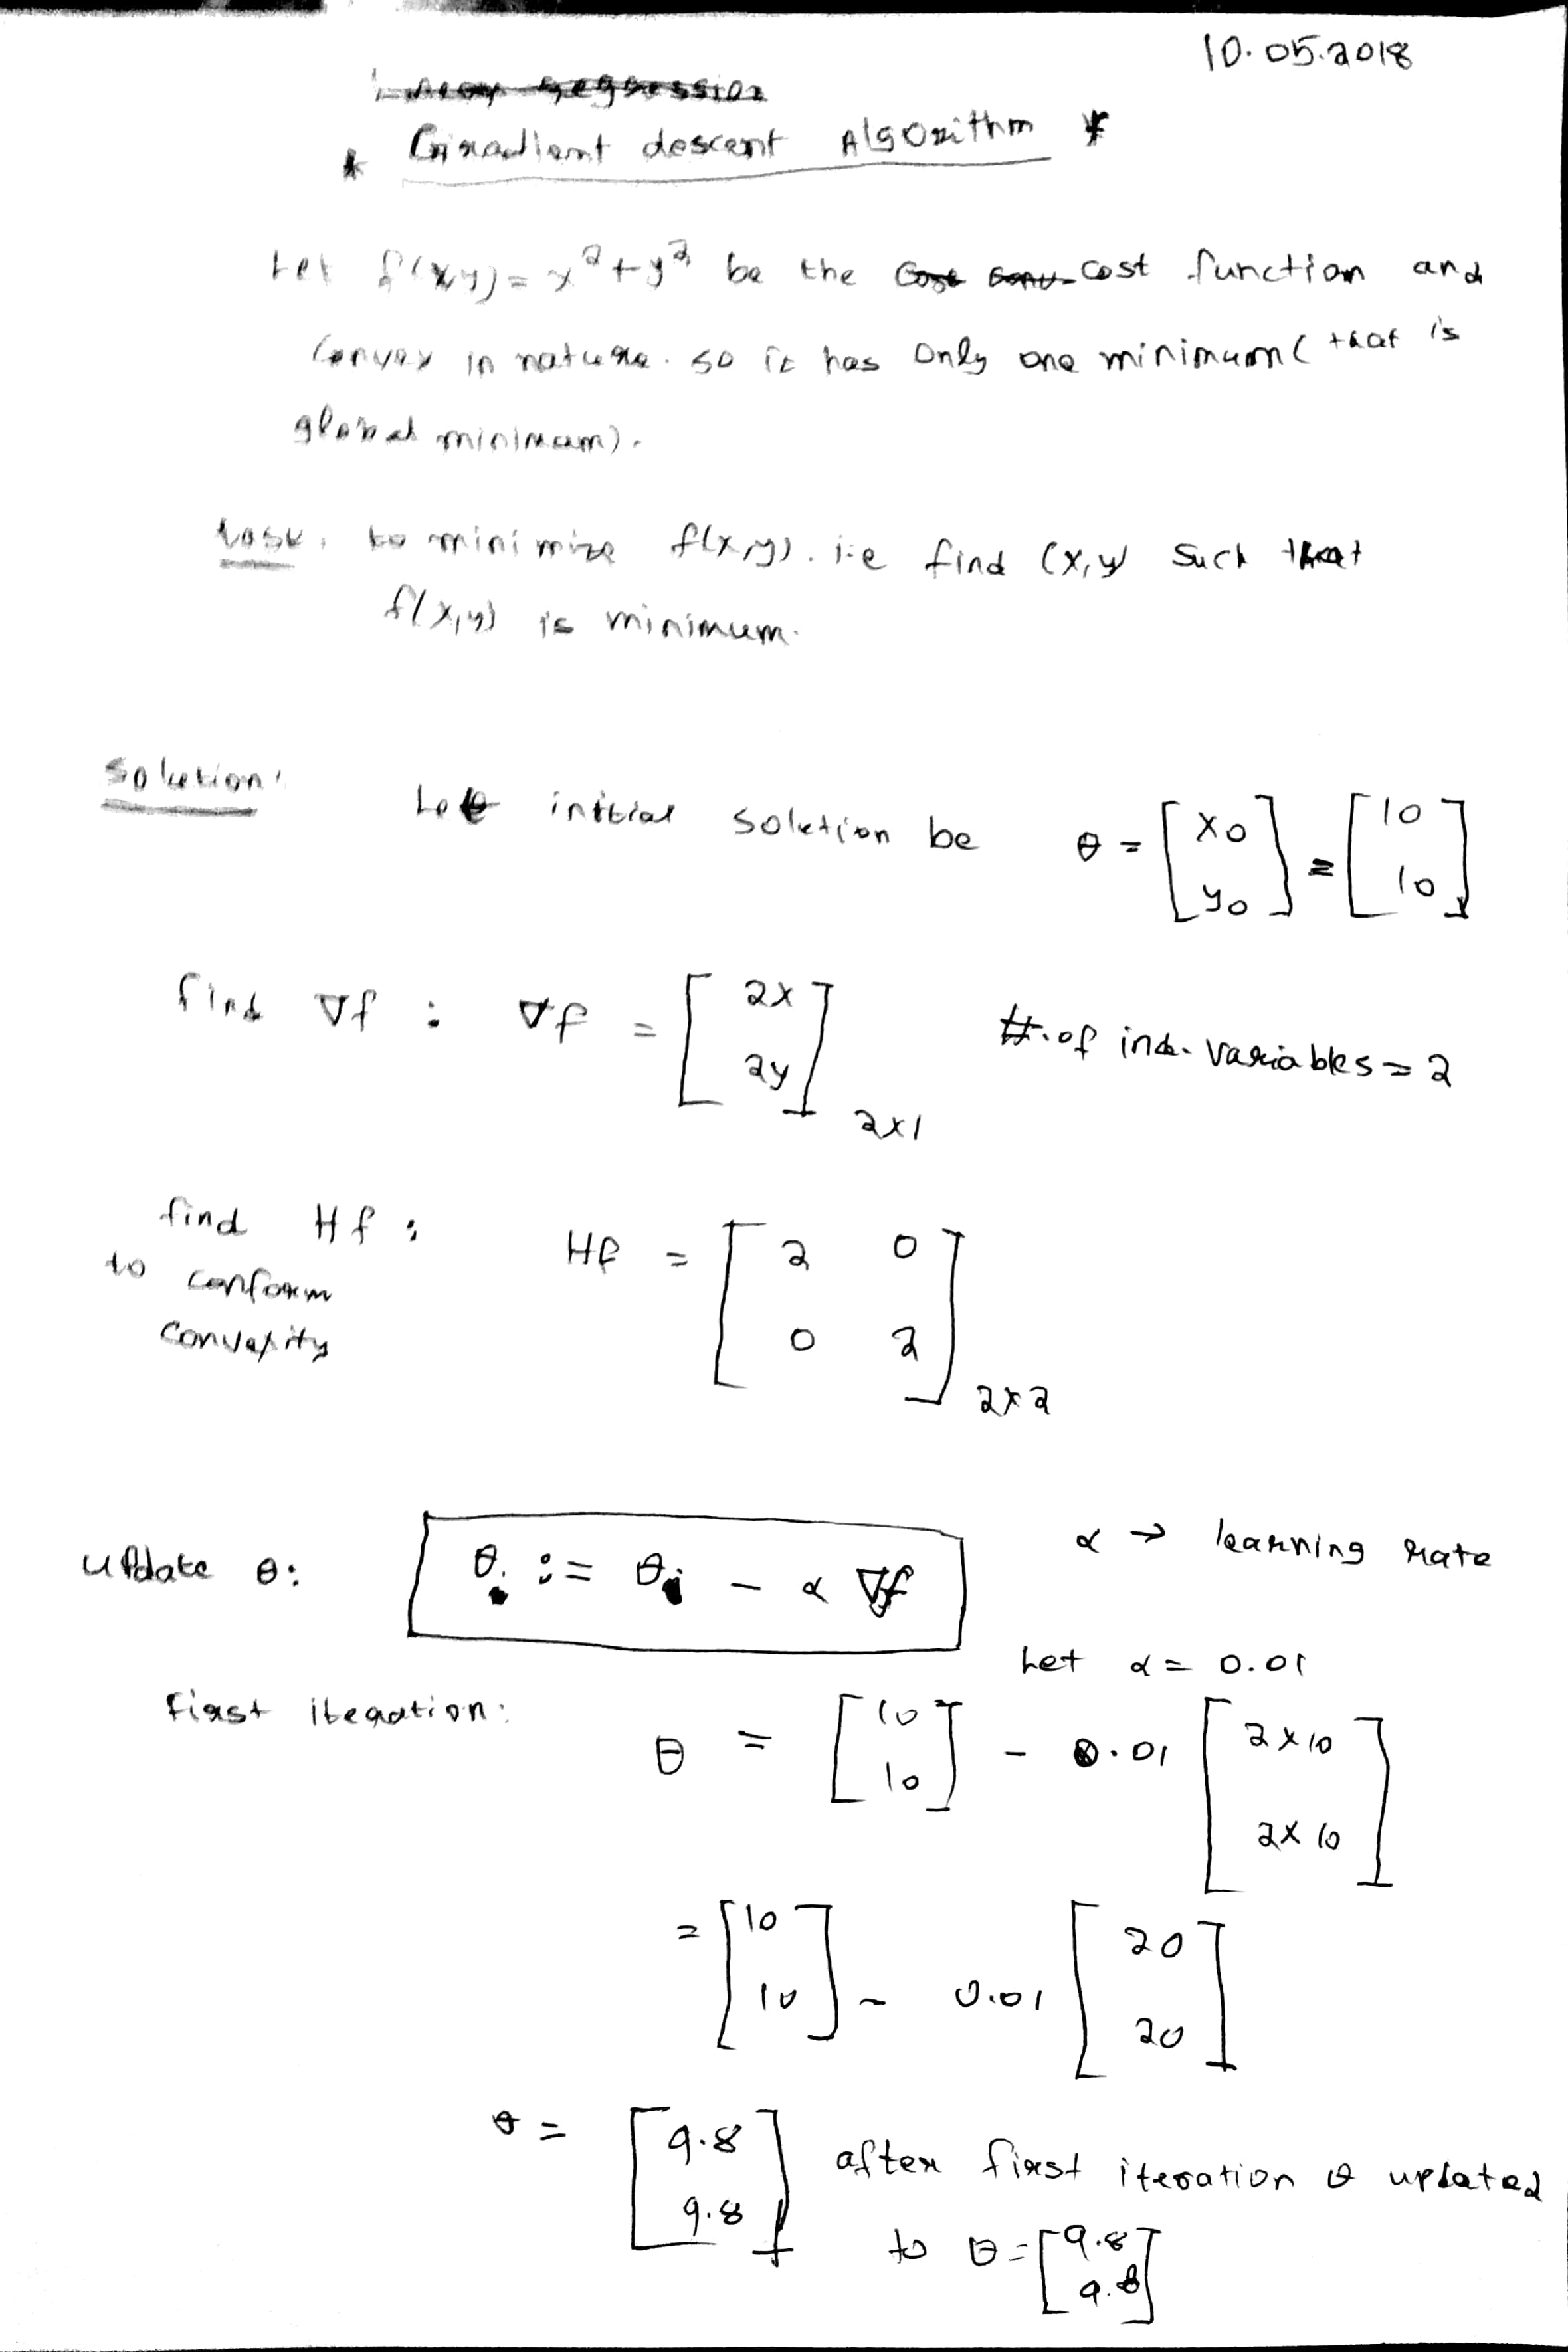 10.05.2018
* Gradient descent Algorithm *
Let f(x,y) = x² + y² be the cost function and
convex in nature. so it has only one minimum (that is
global minimum).
task: to minimize f(x,y). i.e find (x,y) such that
f(x,y) is minimum.
solution: Let initial solution be θ = [x₀ y₀] = [10 10]
find ∇f : ∇f = [2x 2y] 2x1 #.of ind. variables = 2
find Hf : Hf = [2 0
to conform
convexity
0 2] 2x2
update θ: θ := θ - α ∇f α → learning rate
Let α = 0.01
first iteration: θ = [10 10] - 0.01 [2x10 2x10]
= [10 10] - 0.01 [20 20]
θ = [9.8 9.8] after first iteration θ updated
to θ = [9.8 9.8]